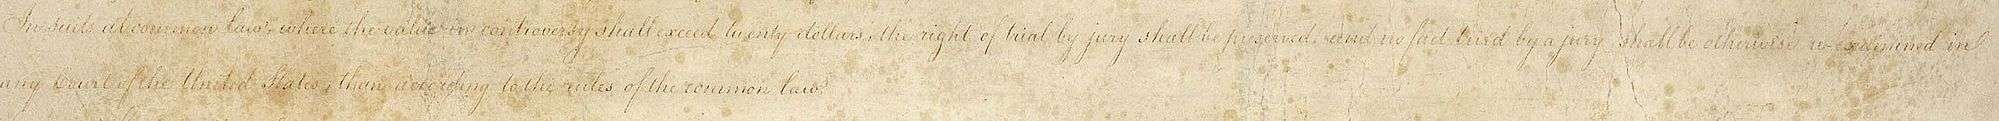 In suits at common law, where the value in controversy shall exceed twenty dollars, the right of trial by jury shall be preserved, and no fact tried by a jury, shall be otherwise re-examined in
any Court of the United States, than according to the rules of the common law.